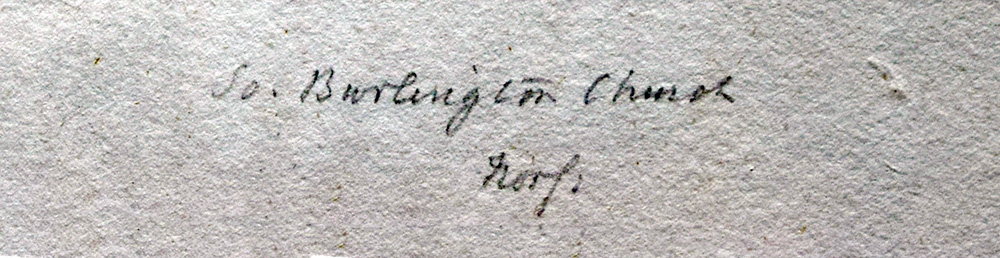 So. Burlington Church
Norf: